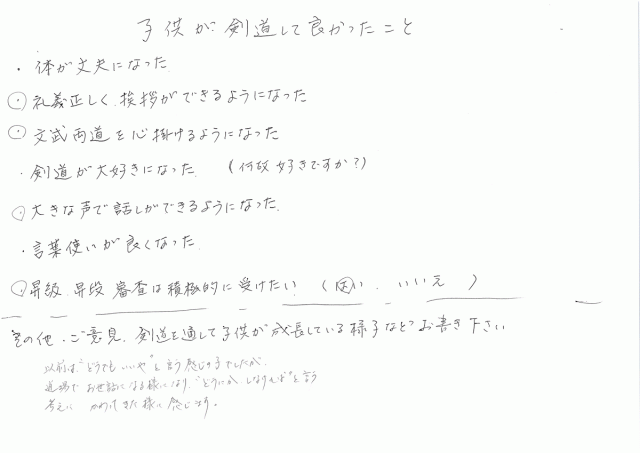 子供が剣道して良かったこと
・体が丈夫になった
・礼義正しく、挨拶ができるようになった
・文武両道を心掛けるようになった
・剣道が大好きになった (何故好きですか?)
・大きな声で話しができるようになった
・言葉使いが良くなった
・昇級、昇段審査は積極的に受けたい (はい、いいえ)
その他・ご意見、剣道を通して子供が成長している様子などお書き下さい
以前は、"どうでもいいや"と言う感じの子でしたが、
道場でお世話になる様になり、"どうにかしなければ"と言う
考えに かわってきた様に感じます。